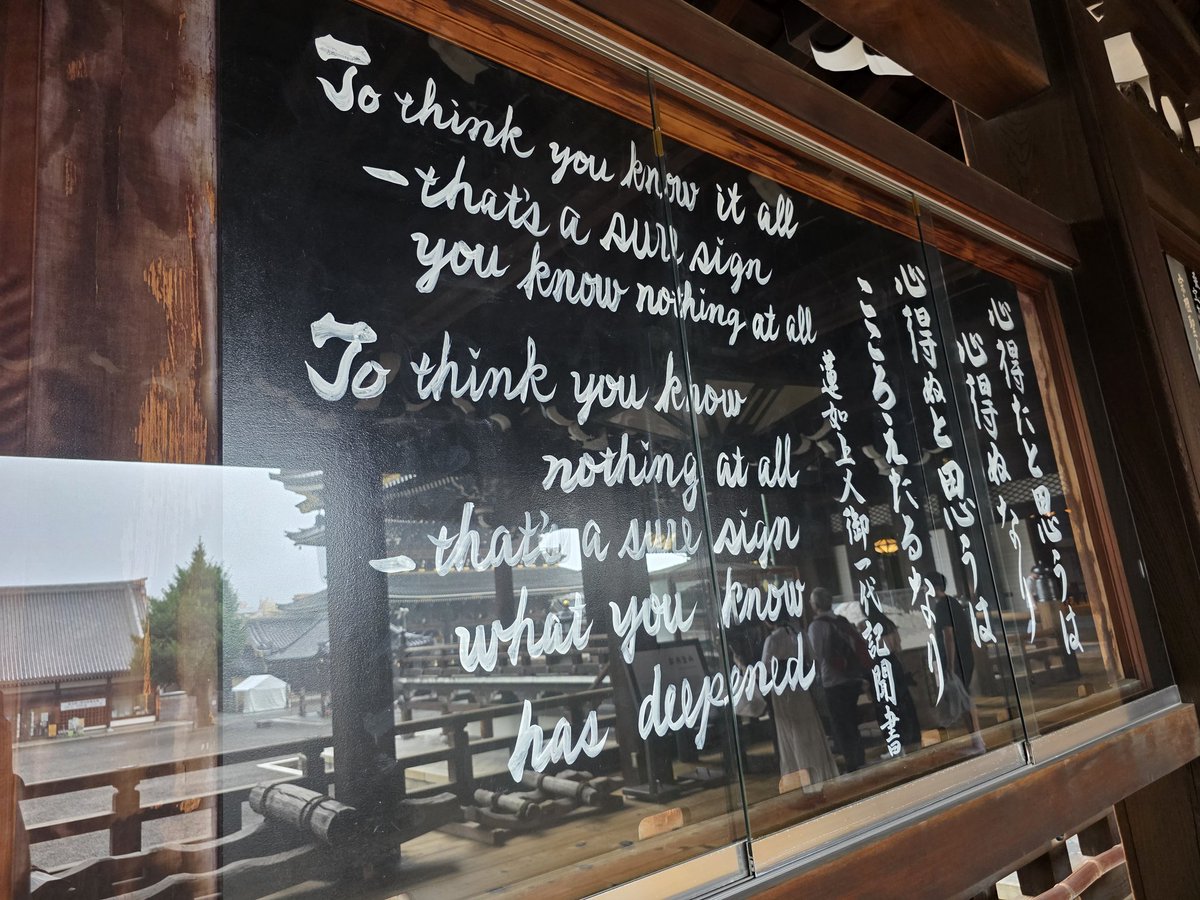 To think you know it all
-that's a sure sign
you know nothing at all
To think you know
nothing at all
-that's a sure sign
what you know
has deepened
心得たと思うは
心得ぬなり
心得ぬと思うは
こころえたるなり
蓮如上人御一代記聞書